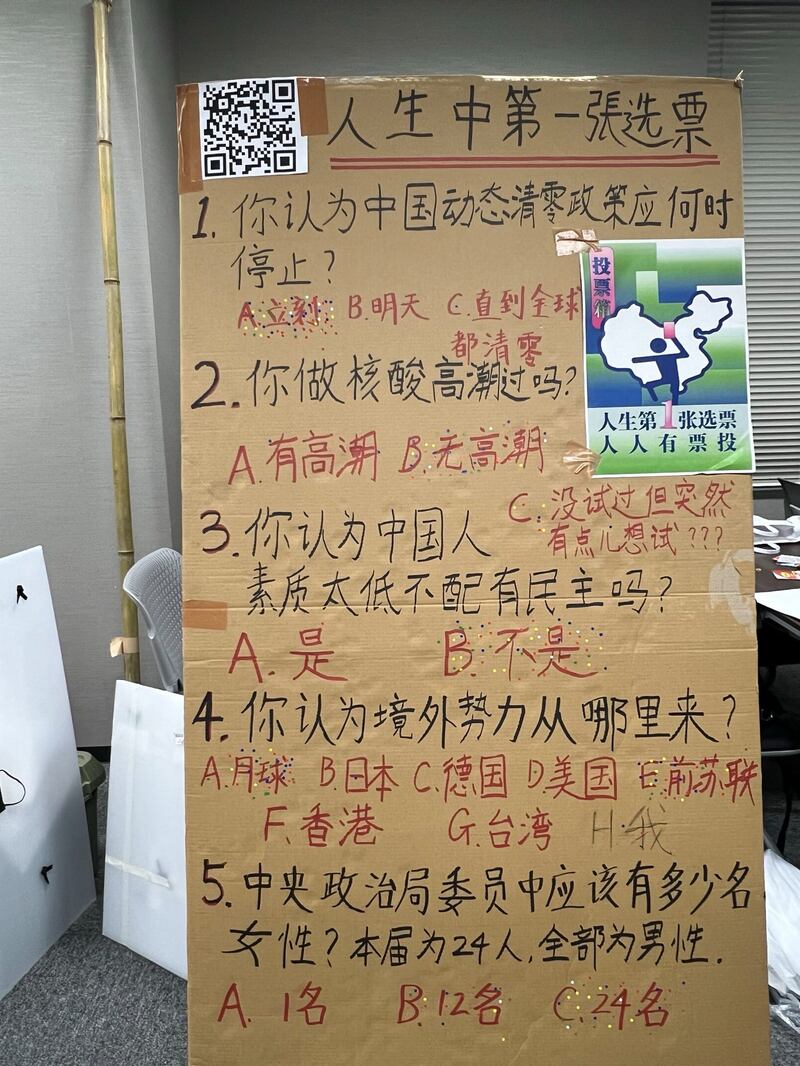 人生中第一張选票
1. 你认为中国动态清零政策应何时
停止?
A.立刻 B.明天 C.直到全球
都清零
投票箱
人生第1张选票
人人有票投
2. 你做核酸高潮过吗?
A.有高潮 B.无高潮
C.没试过但突然
有点儿想试???
3. 你认为中国人
素质太低不配有民主吗?
A.是 B.不是
4. 你认为境外势力从哪里来?
A.月球 B.日本 C.德国 D.美国 E.前苏联
F.香港 G.台湾 H.我
5. 中央政治局委员中应该有多少名
女性?本届为24人,全部为男性.
A.1名 B.12名 C.24名